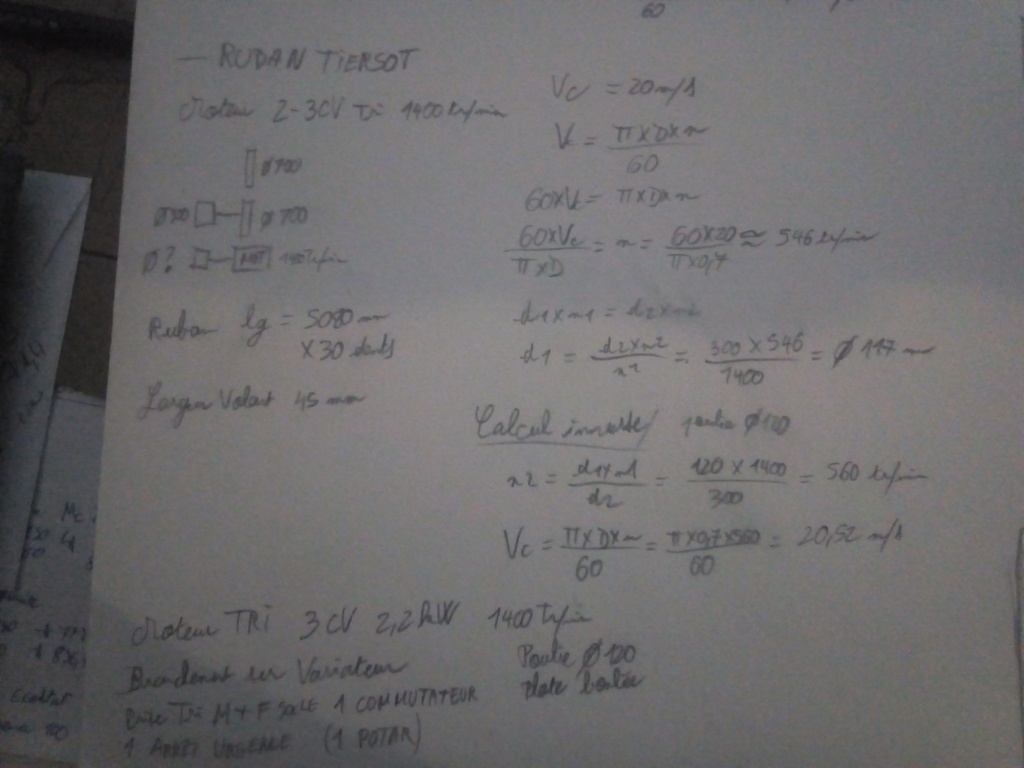 60
— RUBAN TIERSOT
Moteur 2-3CV Tri 1400 tr/min
Ø700
Ø300 Ø700
Ø? MOT 1400 Tr/min
Ruban lg = 5080 mm
X 30 dents
Largeur Volant 45 mm
Vc = 20 m/s
Vc = π x D x n / 60
60xVc = π x D x n
60xVc / π x D = n = 60x20 / π x 0,7 ≃ 546 tr/min
d1 x n1 = d2 x n2
d1 = d2 x n2 / n1 = 300 x 546 / 1400 = Ø 117 mm
Calcul inverse / poulie Ø120
n2 = d1 x n1 / d2 = 120 x 1400 / 300 = 560 tr/min
Vc = π x D x n / 60 = π x 0,7 x 560 / 60 = 20,52 m/s
Moteur TRI 3 CV 2,2 kW 1400 Tr/min
Branchement sur Variateur
Poulie Ø120
Plate bombée
Prise Tri M + F 1 COMMUTATEUR
1 ARRET URGENCE (1 POTAR)